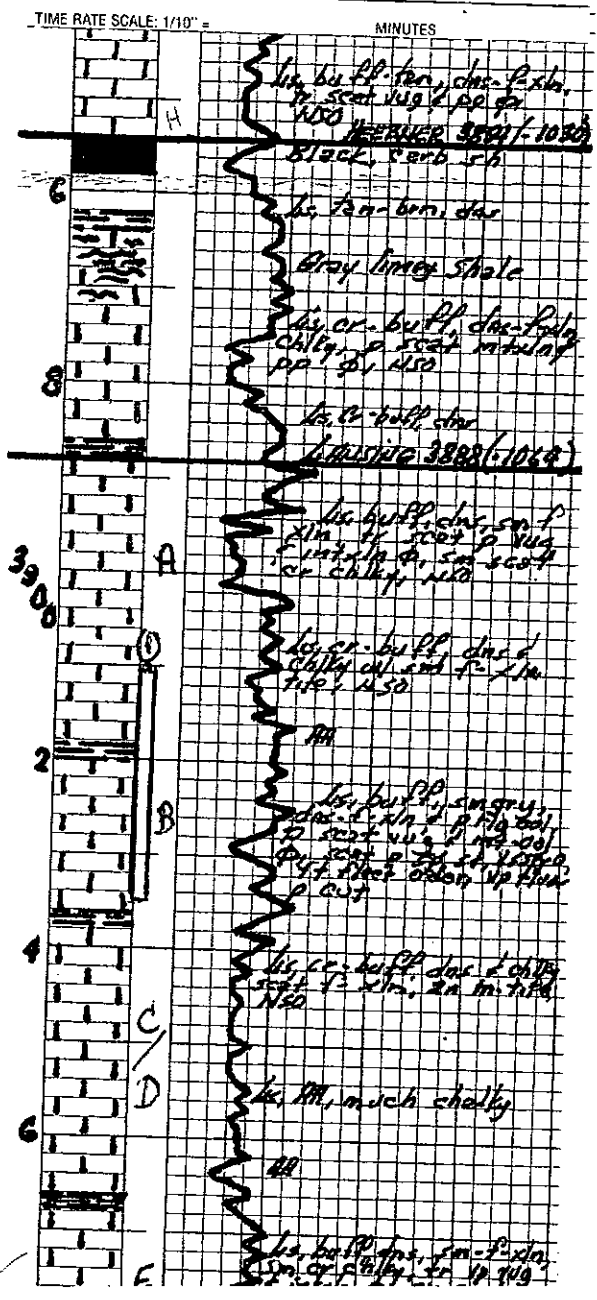 TIME RATE SCALE: 1/10" =
MINUTES
Ls, buff-tan, dns-f-xln,
tr scat vug & pp
NSO
H
HEEBNER 3854(-1030)
Black, carb sh
6
Ls, tan-brn, dns
Gray limey Shale
Ls, cr-buff, dns-f-xln
chlky, p scat intxln
pp φ, NSO
8
Ls, cr-buff, dns
LANSING 3888(-1064)
Ls, buff, dns, sm f
xln, tr scat p vug
& intxln φ, sm scat
cr chlky, NSO
A
3900
1
Ls, cr-buff, dns &
chlky w/ smt f-xln
tite, NSO
2
AA
B
Ls, buff, sm gry,
dns-f-xln & p
p scat vug & int-ool
φ, scat p
odor, vp
p cut
4
Ls, cr-buff dns & chlky
scat f-xln,
NSO
C/D
Ls, AA, much chalky
6
AA
Ls, buff dns, sm-f-xln,
sm cr chlky, tr vug
E